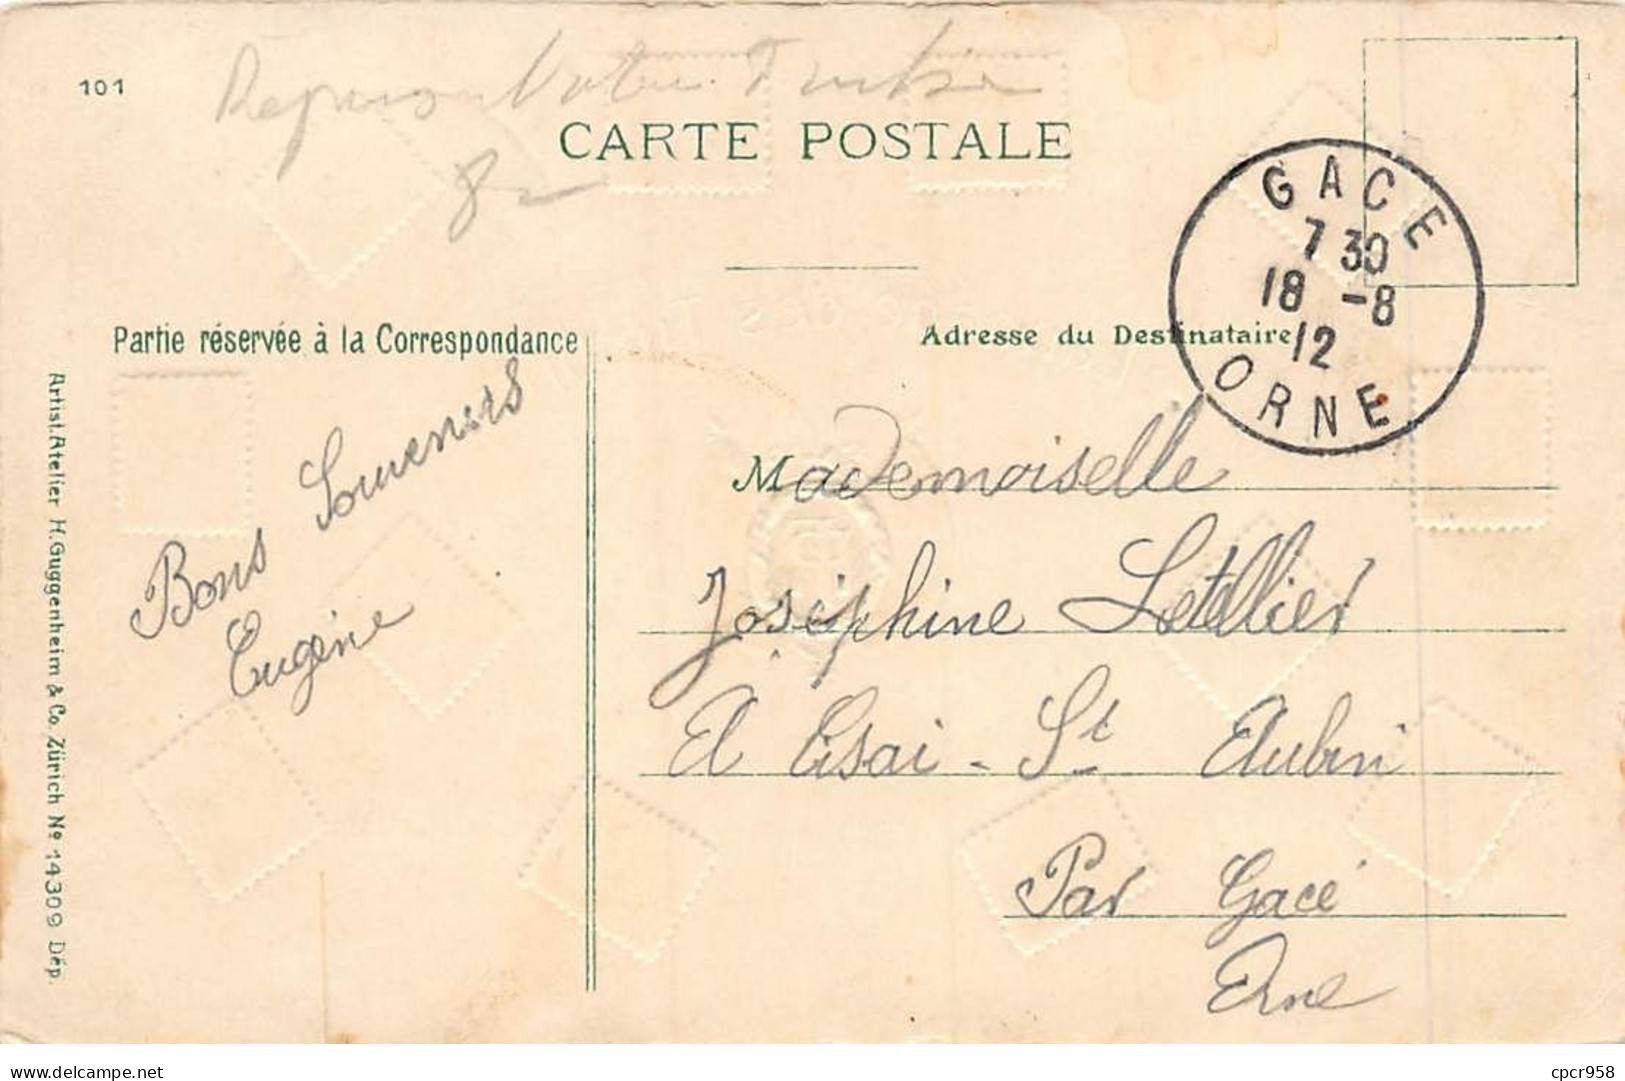 101
CARTE POSTALE
GACE
7 30
18 -8
12
ORNE
Partie réservée à la Correspondance
Adresse du Destinataire
Bons Souvenirs
Eugène
Mademoiselle
Joséphine Letellier
A St Aubin
Par Gacé
Orne
Artist. Atelier H. Guggenheim & Co. Zürich No 14309 Dép.
Delcampe.net
cpcr958